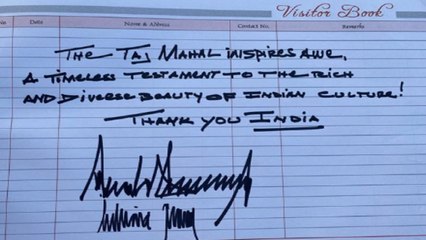 Visitor Book
No. Date Name & Address Contact No. Remarks
The Taj Mahal inspires awe,
A timeless testament to the rich
and diverse beauty of Indian culture!
Thank you India